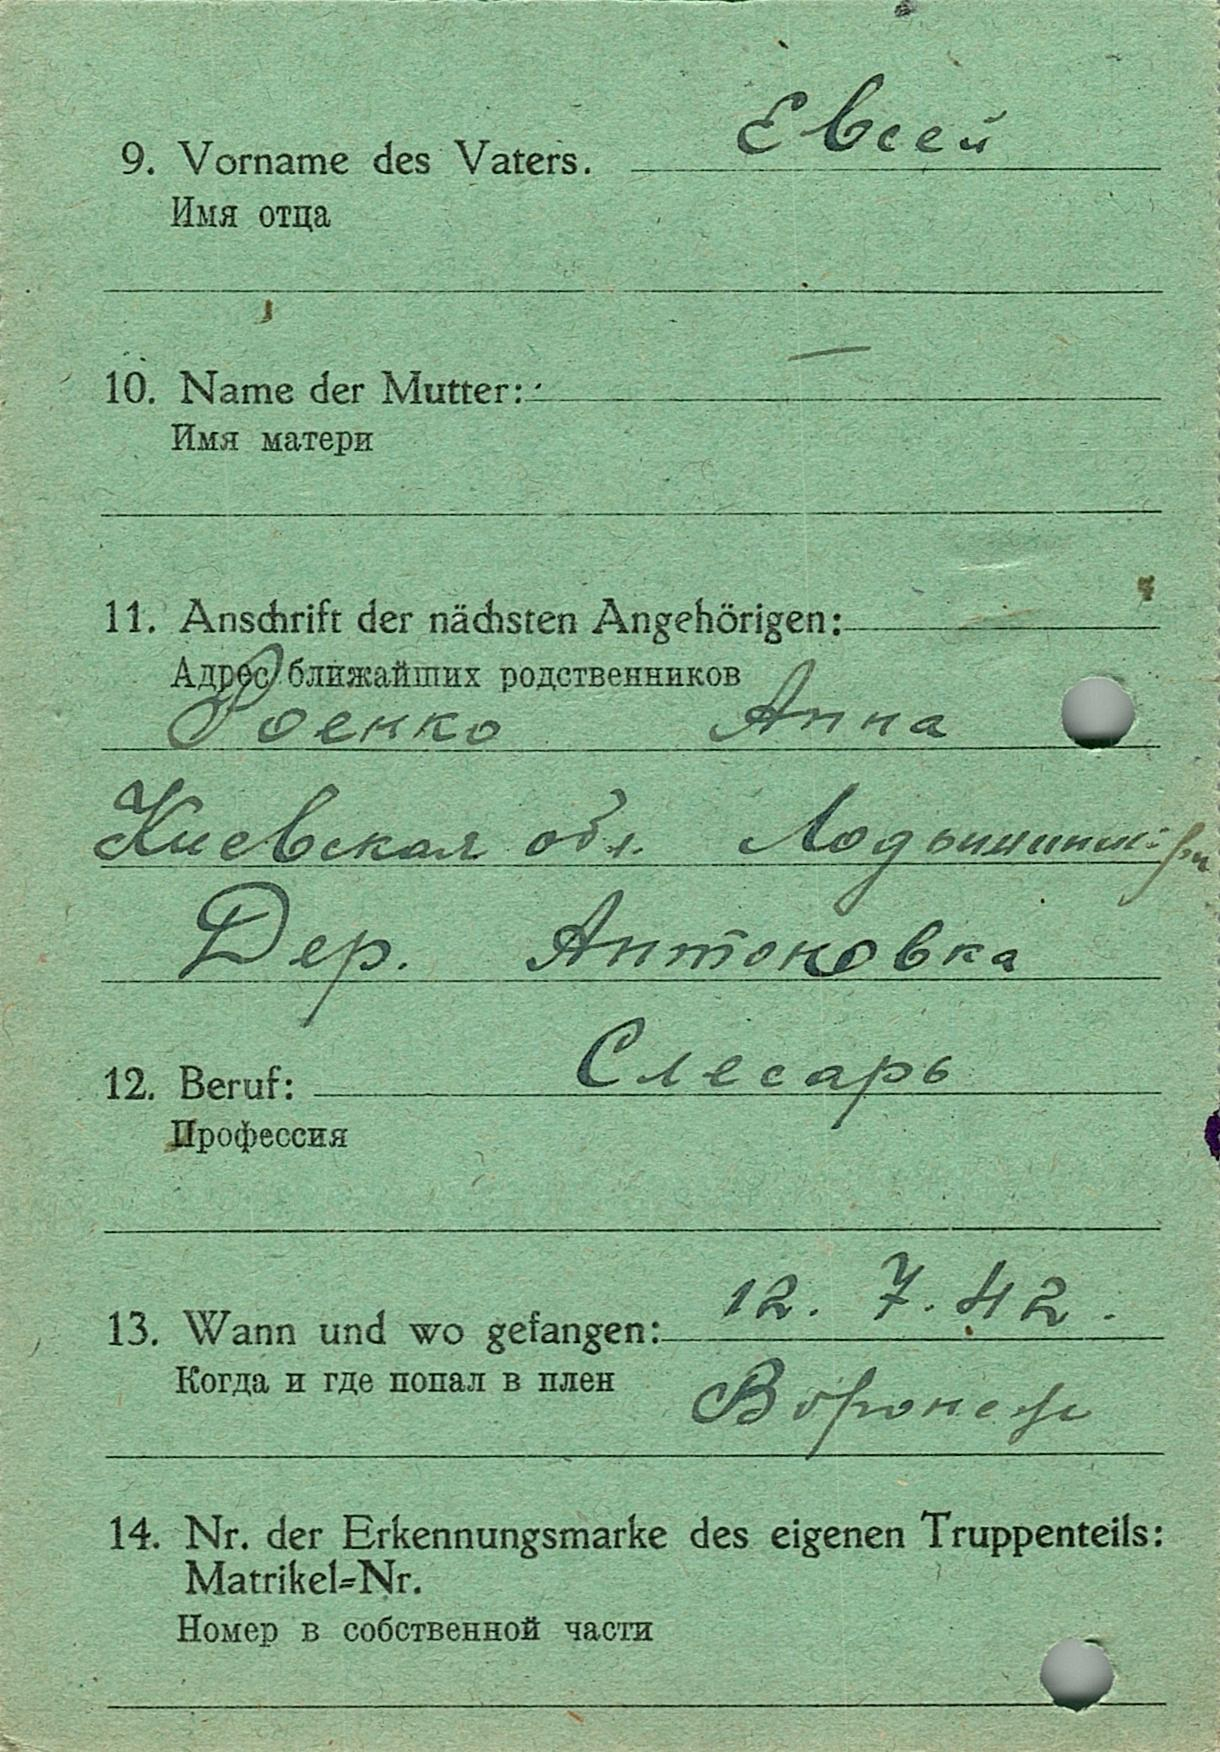 Евсей
9. Vorname des Vaters.
Имя отца
10. Name der Mutter: —
Имя матери
11. Anschrift der nächsten Angehörigen:
Адрес ближайших родственников
Роенко Анна
Киевская обл.
Дер. Антоновка
12. Beruf: Слесарь
Профессия
13. Wann und wo gefangen: 12. 7. 42.
Когда и где попал в плен Воронеж
14. Nr. der Erkennungsmarke des eigenen Truppenteils:
Matrikel=Nr.
Номер в собственной части